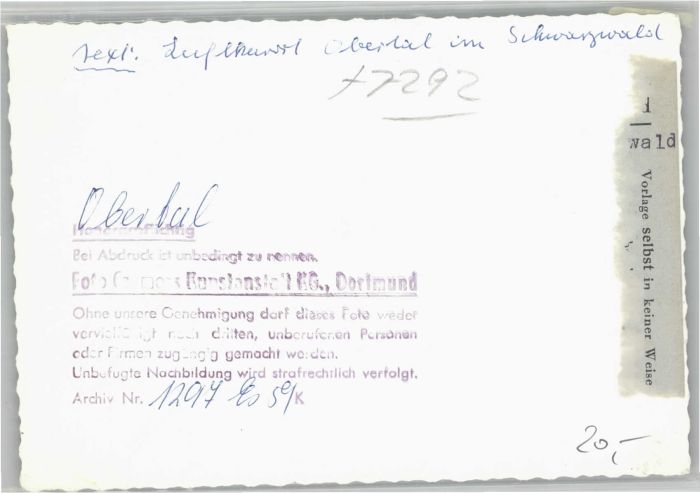 Text: Luftkurort Obertal im Schwarzwald
77292
Obertal
Honorarpflichtig
Bei Abdruck ist unbedingt zu nennen.
Foto Cramers Kunstanstalt KG., Dortmund
Ohne unsere Genehmigung darf dieses Foto weder
vervielfältigt noch dritten, unberufenen Personen
oder Firmen zugängig gemacht werden.
Unbefugte Nachbildung wird strafrechtlich verfolgt.
Archiv Nr. 1297 Es 59/K
wald
Vorlage selbst in keiner Weise
20,-